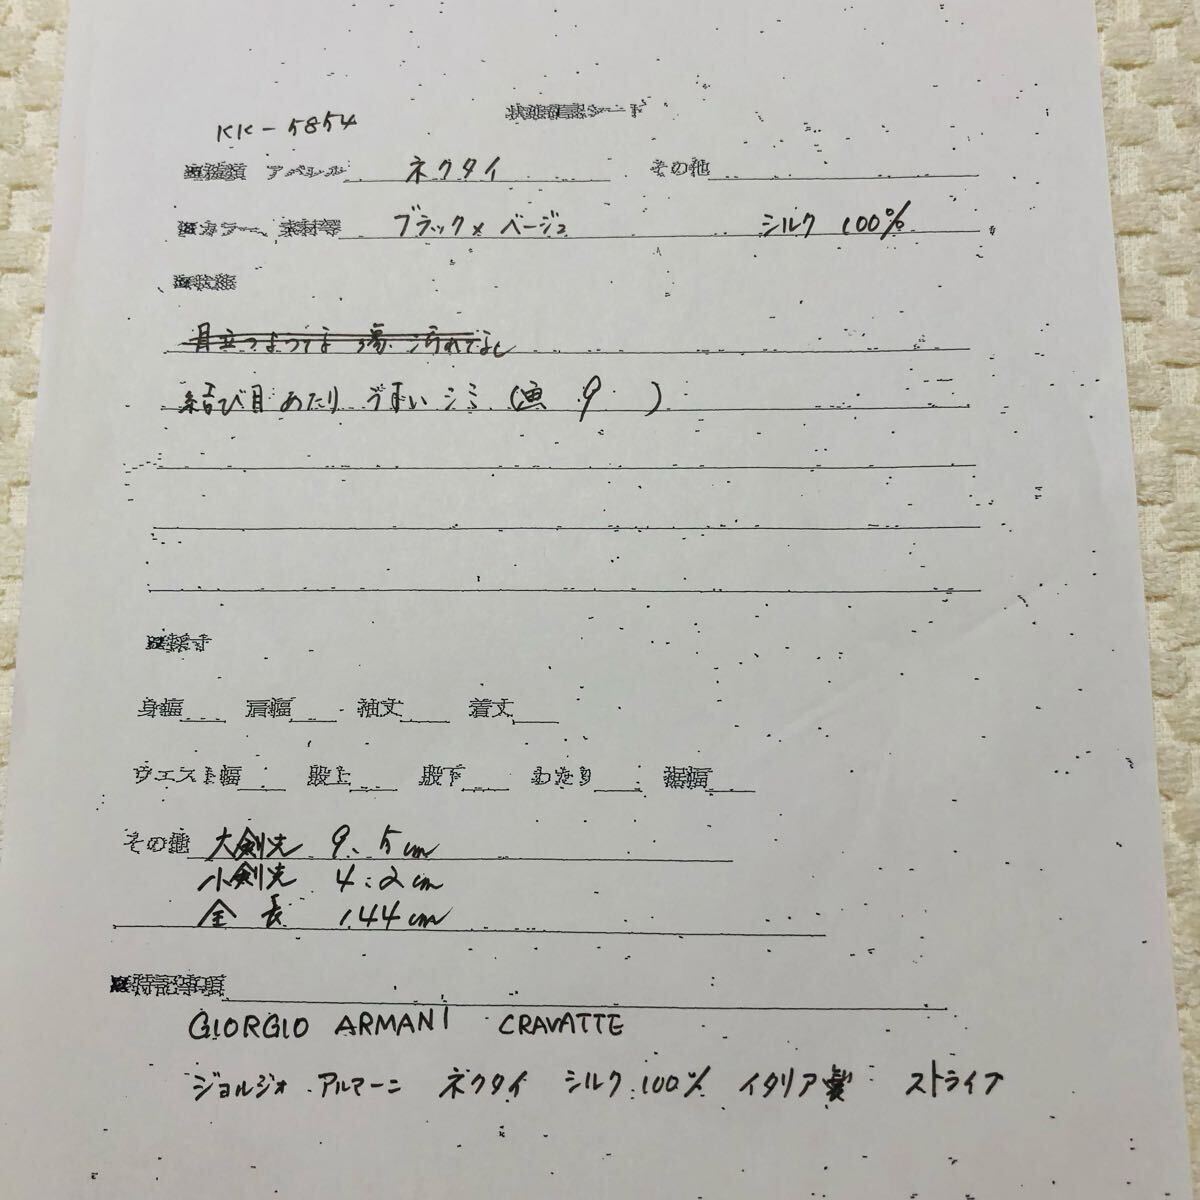 状態確認シート
KK-5854
■種類 アパレル ネクタイ その他
■カラー、素材等 ブラック× ベージュ シルク 100%
■状態
目立つような 傷 汚れなし
結び目 あたり 薄い シミ (画 9 )
■採寸
身幅 肩幅 袖丈 着丈
ウエスト幅 股上 股下 わたり 裾幅
その他 大剣先 9.5cm
小剣先 4.2cm
全長 144cm
■特記事項
GIORGIO ARMANI CRAVATTE
ジョルジオ アルマーニ ネクタイ シルク 100% イタリア製 ストライプ